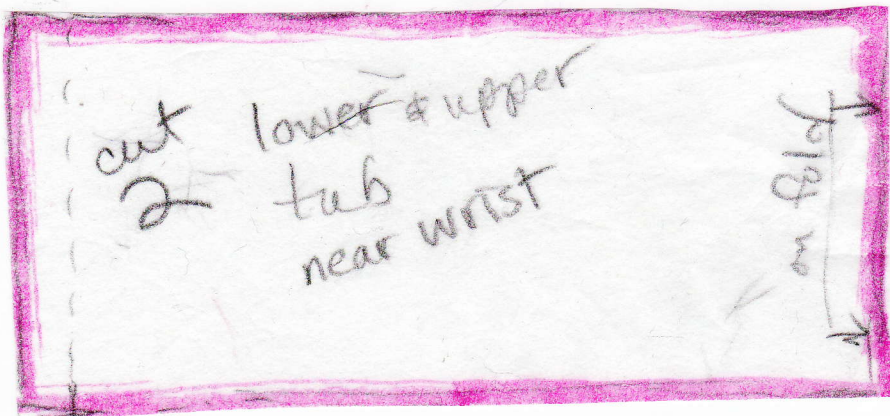 cut lower & upper
2 tab
near wrist
on fold